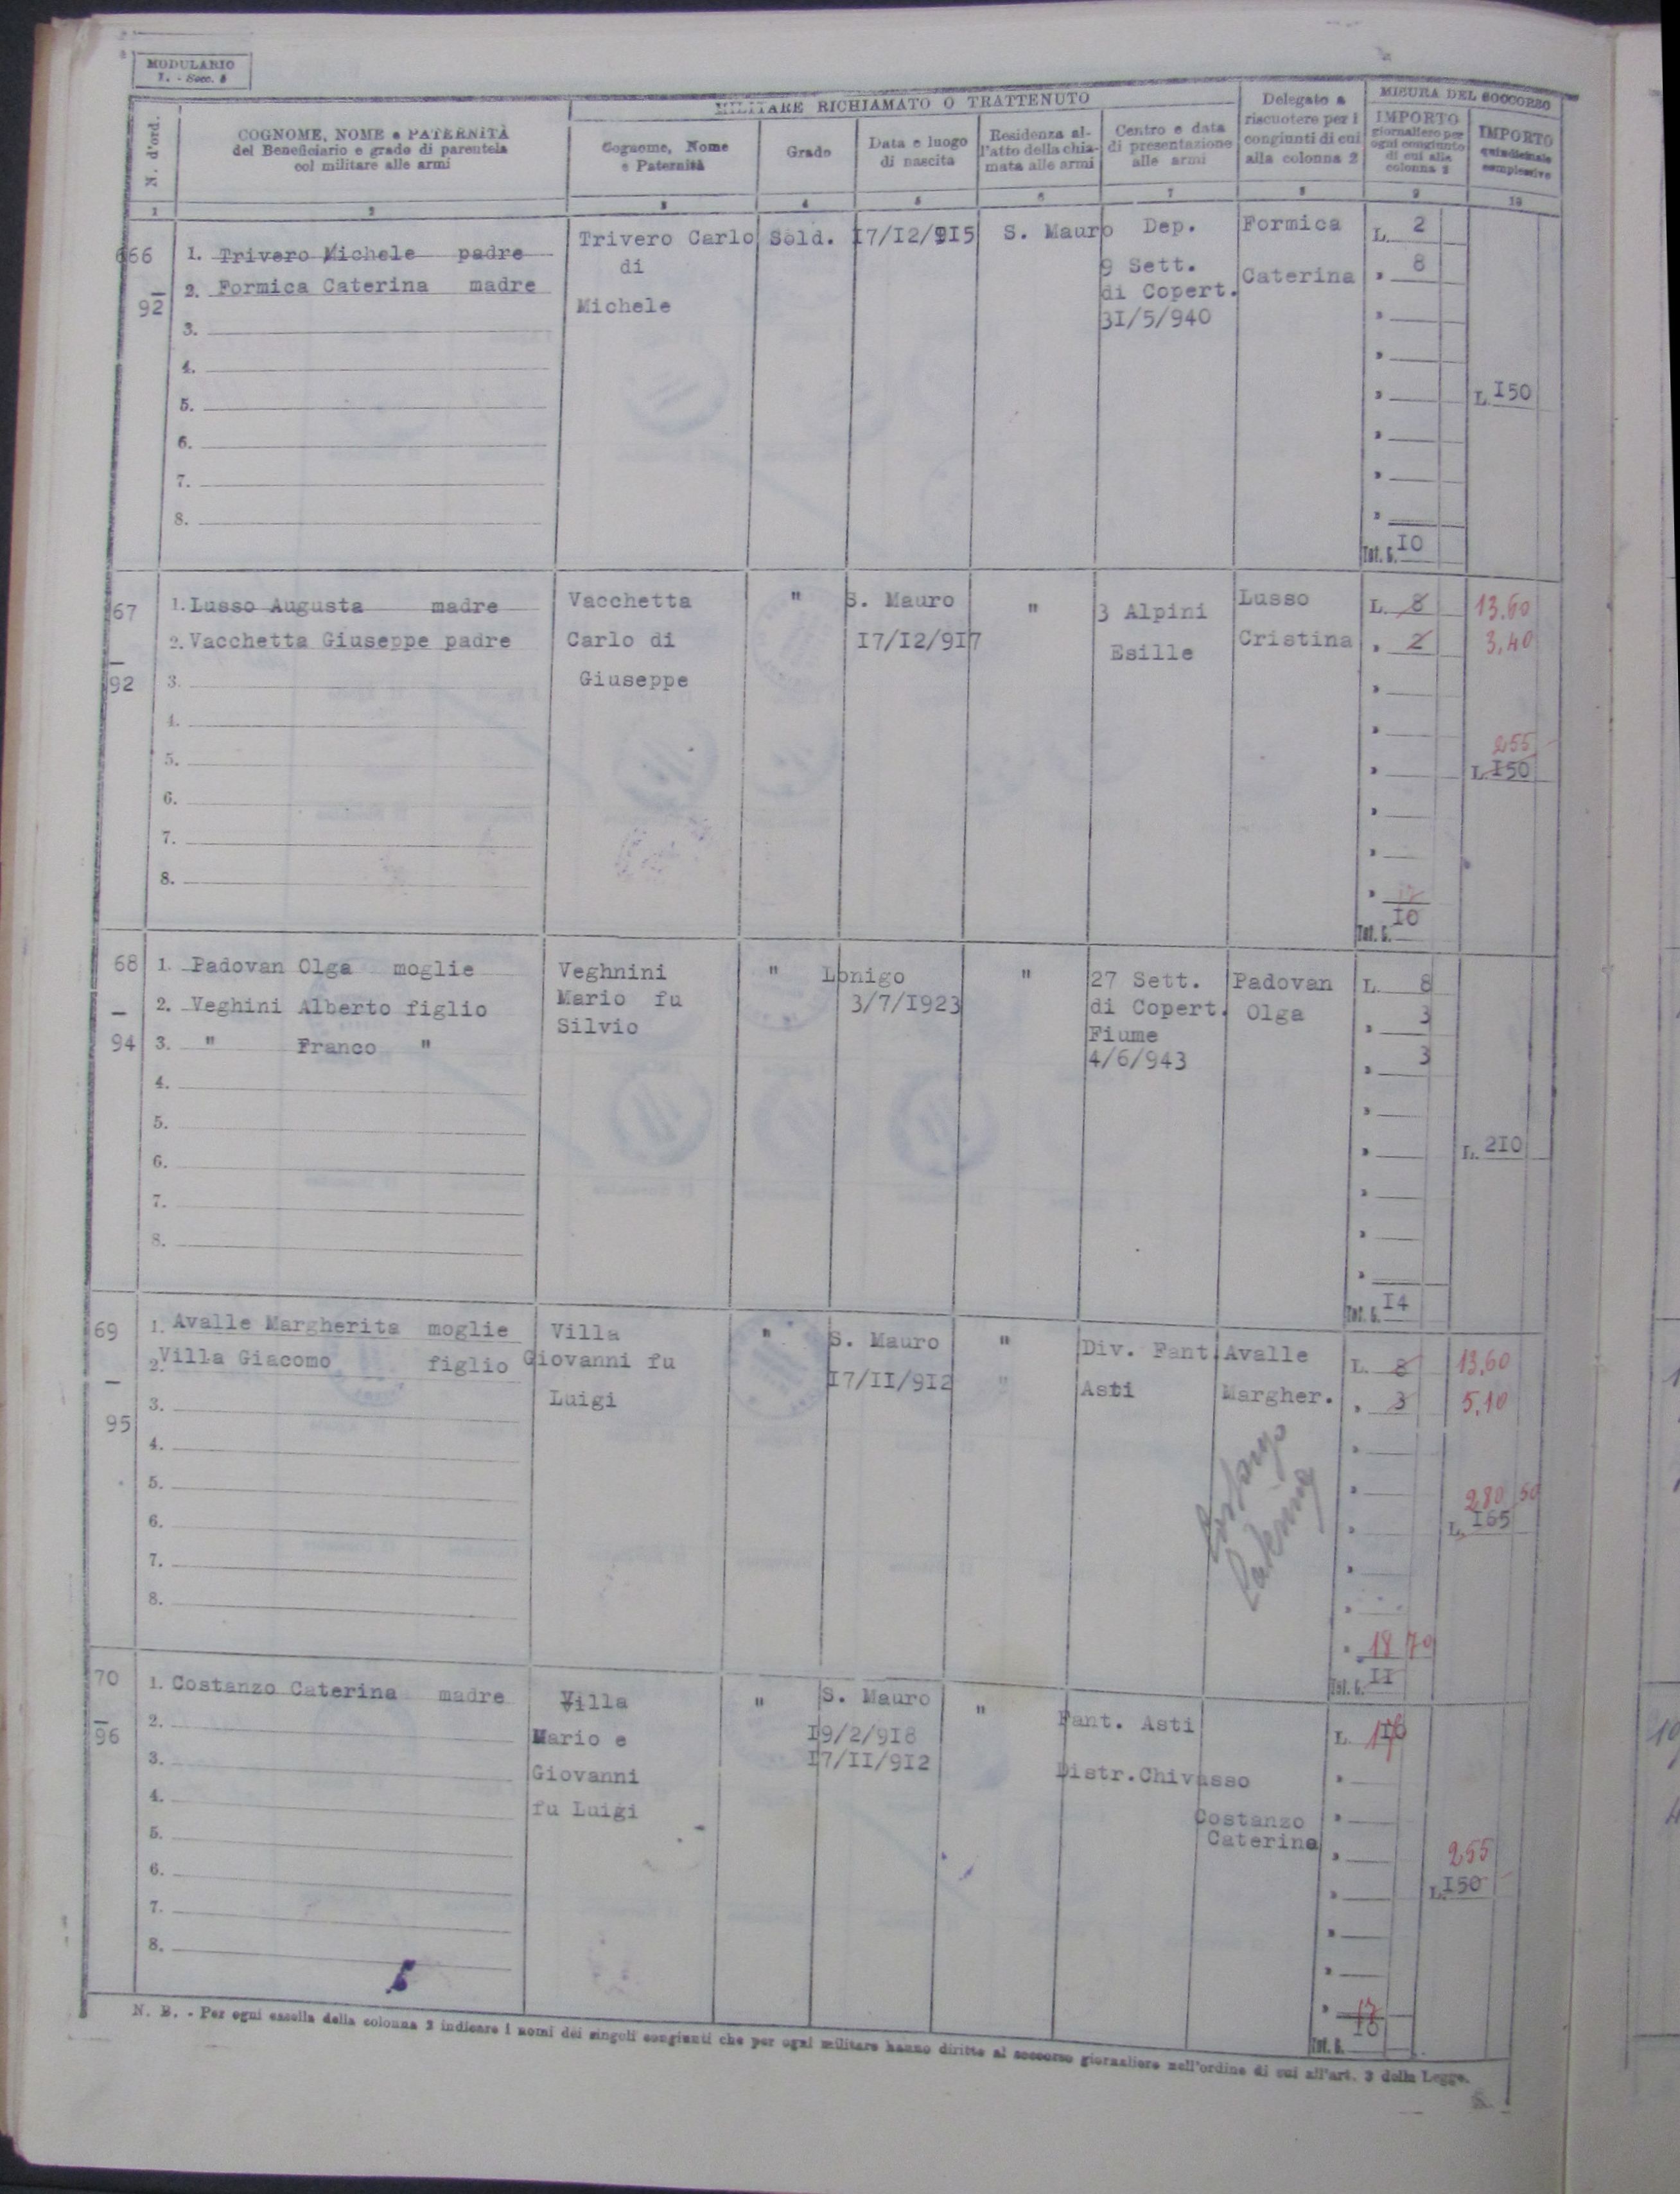 MODULARIO
I. - Socc. 5
N. d'ord.
COGNOME, NOME e PATERNITÀ
del Beneficiario e grado di parentela
col militare alle armi
MILITARE RICHIAMATO O TRATTENUTO
Cognome, Nome
e Paternità
Grado
Data e luogo
di nascita
Residenza al-
l'atto della chia-
mata alle armi
Centro e data
di presentazione
alle armi
Delegato a
riscuotere per i
congiunti di cui
alla colonna 2
MISURA DEL SOCCORSO
IMPORTO
giornaliero per
ogni congiunto
di cui alla
colonna 2
IMPORTO
quindicinale
complessivo
1 2 3 4 5 6 7 8 9 10
666
—
92
1. Trivero Michele padre
2. Formica Caterina madre
3.
4.
5.
6.
7.
8.
Trivero Carlo
di
Michele
Sold.
I7/I2/9I5
S. Mauro
Dep.
9 Sett.
di Copert.
3I/5/940
Formica
Caterina
L. 2
" 8
L. I50
Tot. G. IO
67
—
92
1. Lusso Augusta madre
2. Vacchetta Giuseppe padre
3.
4.
5.
6.
7.
8.
Vacchetta
Carlo di
Giuseppe
"
S. Mauro
I7/I2/9I7
"
3 Alpini
Esille
Lusso
Cristina
L. 8 13.60
" 2 3,40
255
L. I50
17
Tot. G. IO
68
—
94
1. Padovan Olga moglie
2. Veghini Alberto figlio
3. " Franco "
4.
5.
6.
7.
8.
Veghnini
Mario fu
Silvio
"
Lonigo
3/7/I923
"
27 Sett.
di Copert.
Fiume
4/6/943
Padovan
Olga
L. 8
" 3
" 3
L. 2IO
Tot. G. I4
69
—
95
1. Avalle Margherita moglie
2. Villa Giacomo figlio
3.
4.
5.
6.
7.
8.
Villa
Giovanni fu
Luigi
"
S. Mauro
I7/II/9I2
"
"
Div. Fant.
Asti
Avalle
Margher.
Costanzo
Caterina
L. 8 13,60
" 3 5,10
280 50
L. I65
18 70
Tot. G. II
70
—
96
1. Costanzo Caterina madre
2.
3.
4.
5.
6.
7.
8.
Villa
Mario e
Giovanni
fu Luigi
"
S. Mauro
I9/2/9I8
I7/II/9I2
"
Fant. Asti
Distr.Chivasso
Costanzo
Caterina
L. IO 17
255
L. I50
17
IO
Tot. G.
N. B. - Per ogni casella della colonna 2 indicare i nomi dei singoli congiunti che per ogni militare hanno diritto al soccorso giornaliero nell'ordine di cui all'art. 3 della Legge.